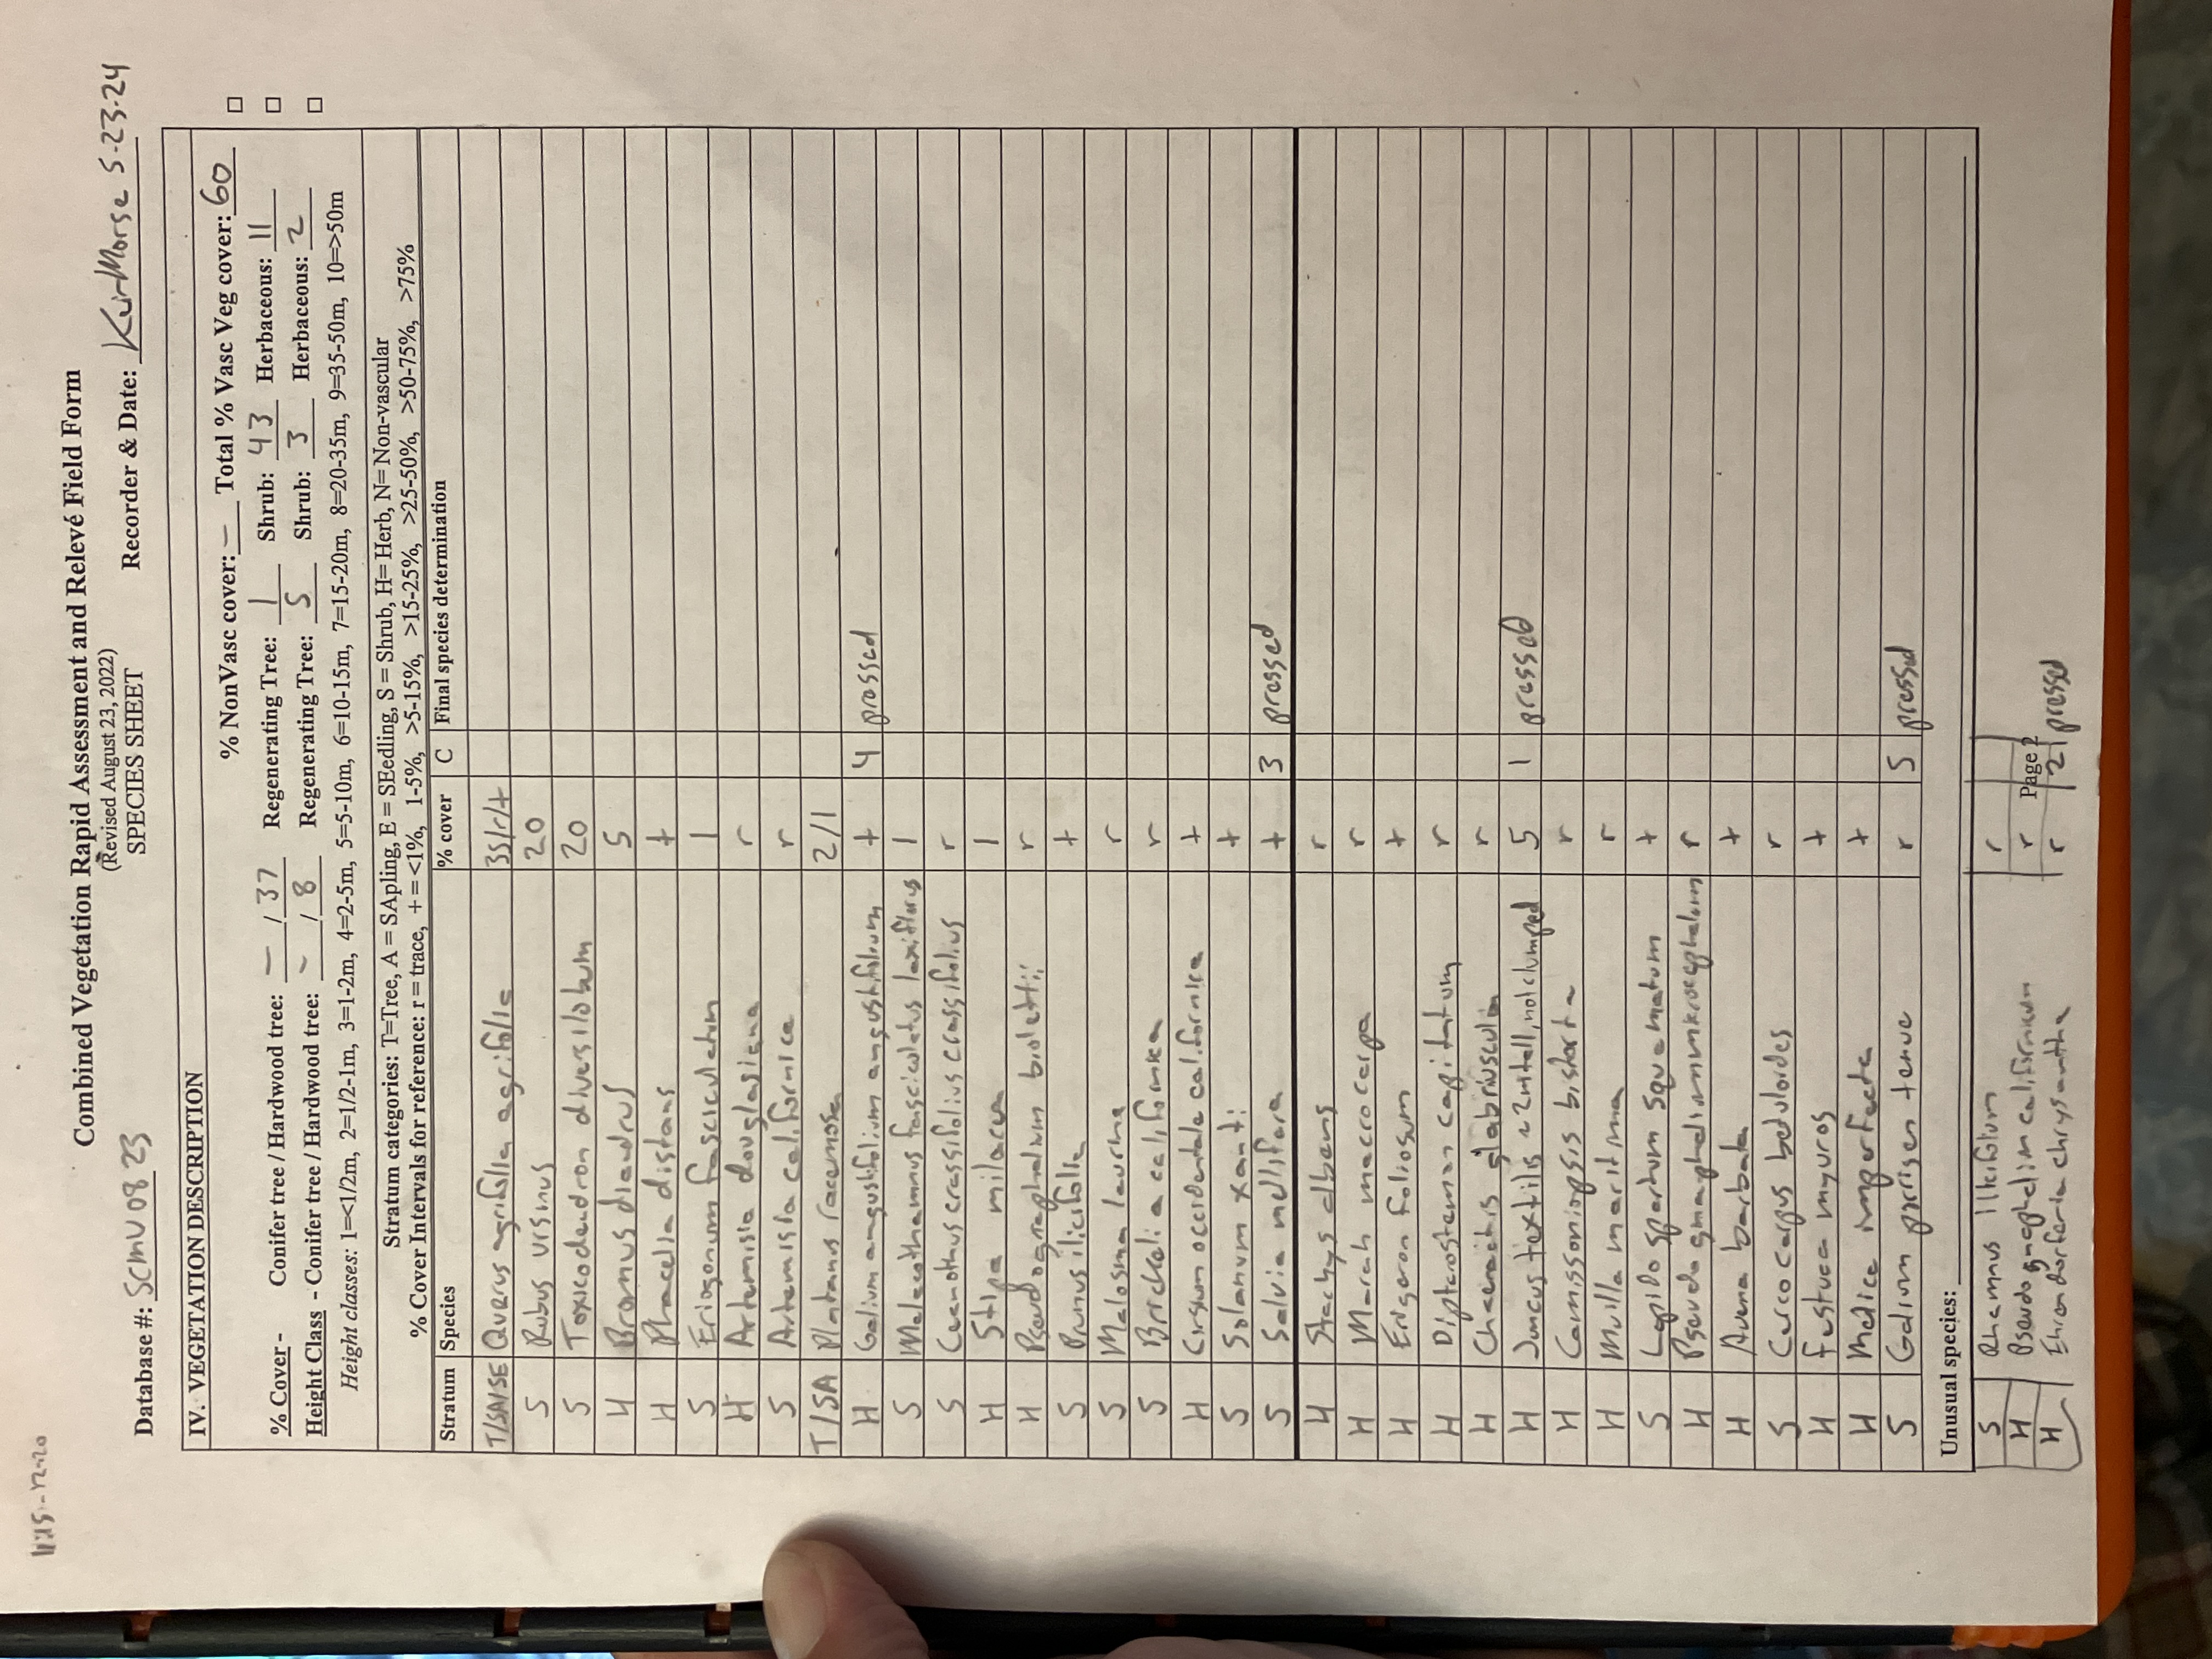 1215-1220
Combined Vegetation Rapid Assessment and Relevé Field Form
(Revised August 23, 2022)
Database #: SCMU0823 SPECIES SHEET Recorder & Date: Kurt Morse 5-23-24
IV. VEGETATION DESCRIPTION
% NonVasc cover: – Total % Vasc Veg cover: 60
% Cover - Conifer tree / Hardwood tree: – / 37 Regenerating Tree: 1 Shrub: 43 Herbaceous: 11
Height Class - Conifer tree / Hardwood tree: – / 8 Regenerating Tree: 5 Shrub: 3 Herbaceous: 2
Height classes: 1=<1/2m, 2=1/2-1m, 3=1-2m, 4=2-5m, 5=5-10m, 6=10-15m, 7=15-20m, 8=20-35m, 9=35-50m, 10=>50m
Stratum categories: T=Tree, A = SApling, E = SEedling, S = Shrub, H= Herb, N= Non-vascular
% Cover Intervals for reference: r = trace, + = <1%, 1-5%, >5-15%, >15-25%, >25-50%, >50-75%, >75%
Stratum Species % cover C Final species determination
T/SA/SE Quercus agrifolia agrifolia 35/r/+
S Rubus ursinus 20
S Toxicodendron diversilobum 20
H Bromus diandrus 5
H Phacelia distans +
S Eriogonum fasciculatum 1
H Artemisia douglasiana r
S Artemisia californica r
T/SA Platanus racemosa 2/1
H Galium angustifolium angustifolium + 4 pressed
S Malacothamnus fasciculatus laxiflorus 1
S Ceanothus crassifolius crassifolius r
H Stipa miliacea 1
H Pseudognaphalium biolettii r
S Prunus ilicifolia +
S Malosma laurina r
S Brickellia californica r
H Cirsium occidentale californica +
S Solanum xanti +
S Salvia mellifera + 3 pressed
H Stachys albens r
H Marah macrocarpa r
H Erigeron foliosum +
H Dipterostemon capitatum r
H Chaenactis glabriuscula r
H Juncus textilis ~2m tall, not clumped 5 1 pressed
H Camissoniopsis bistorta r
H Muilla maritima r
S Lepidospartum squamatum +
H Pseudognaphalium microcephalum r
H Avena barbata +
S Cercocarpus betuloides r
H Festuca myuros +
H Melica imperfecta +
S Galium porrigen tenue r 5 pressed
Unusual species:
S Rhamnus ilicifolium r
H Pseudognaphalium californicum r
Page 2
H Ehrendorferia chrysantha r 2 pressed